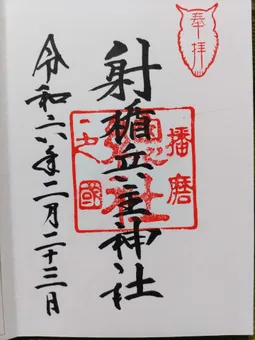 奉拝
播磨
射楯兵主神社
総社
之國
令和六年二月二十三日